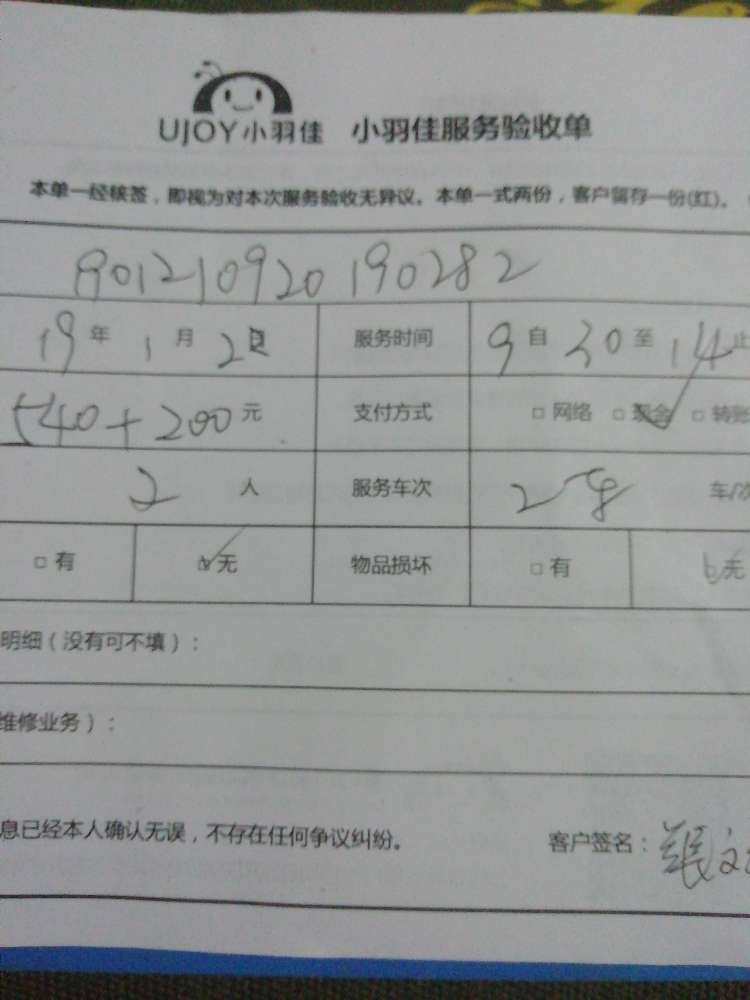 UJOY小羽佳 小羽佳服务验收单
本单一经核签，即视为对本次服务验收无异议。本单一式两份，客户留存一份(红)。
901210920190282
19年1月2日 服务时间 9自30至14止
540+200元 支付方式 □网络 □现金 □转账
2人 服务车次 车/次
□有 无 物品损坏 □有 无
明细（没有可不填）：
维修业务）：
息已经本人确认无误，不存在任何争议纠纷。 客户签名：